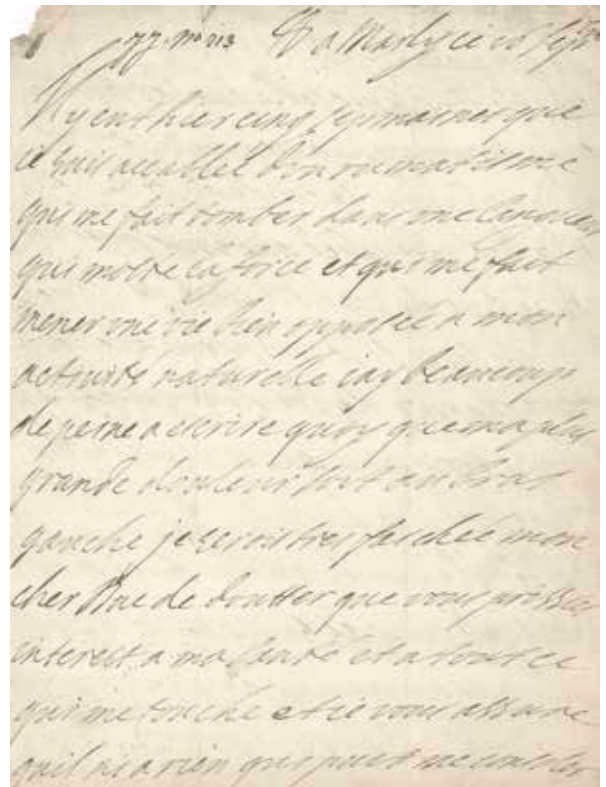 A Marly ce 10 sep
Il y eut hier cinq semaines que
ie suis accablée d'un rumatisme
qui me fait tomber dans une langueur
qui moste la force et qui me fait
mener une vie bien opposée a mon
activité naturelle iay beaucoup
de peine a escrire quoy que ma plus
grande douleur soit au bras
gauche je serois tres faschée mon
cher Duc de doutter que vous prissiez
interest a ma santé et a tout ce
qui me touche et ie vous assure
quil ni a rien qui peust me consoler